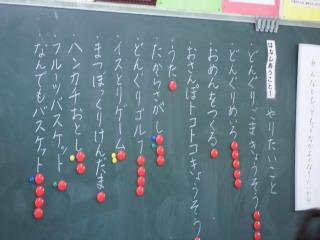 はなしあうこと！
やりたいこと
・どんぐりごまきょうそう
・どんぐりめいろ
・おめんをつくる
・おさんぽトコトコきょうそう
・うた
・たからさがし
・どんぐりゴルフ
・イスとりゲーム
・まつぼっくりけんだま
・ハンカチおとし
・フルーツバスケット
・なんでもバスケット